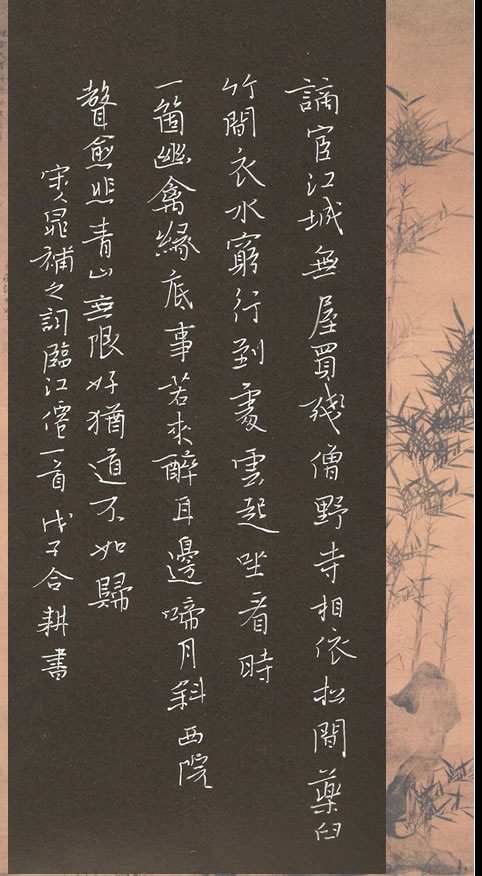 謫宦江城無屋買殘僧野寺相依松間藥臼
竹間衣水窮行到處雲起坐看時
一箇幽禽緣底事苦來醉耳邊啼月斜西院
聲愈悲青山無限好猶道不如歸
宋人晁補之詞臨江僊一首 戊子合耕書